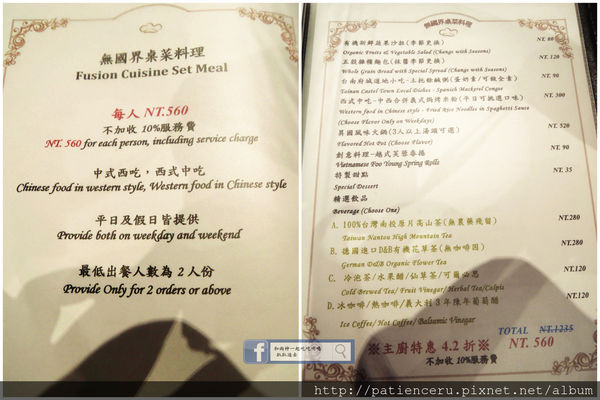 無國界桌菜料理
Fusion Cuisine Set Meal
每人 NT.560
不加收 10%服務費
NT. 560 for each person, including service charge
中式西吃，西式中吃
Chinese food in western style, Western food in Chinese style
平日及假日皆提供
Provide both on weekday and weekend
最低出餐人數為 2 人份
Provide Only for 2 orders or above
無國界桌菜料理
有機新鮮蔬果沙拉(季節更換) NT. 80
Organic Fruits & Vegetables Salad (Change with Seasons)
五穀雜糧麵包(抹醬季節更換) NT. 120
Whole Grain Bread with Special Spread (Change with Seasons)
台南府城道地小吃-土托魚鹹粥(蛋奶素/可做全素) NT. 90
Tainan Castel Town Local Dishes - Spanish Mackerel Congee
西式中吃-中西合併義式鍋烤米粉(平日可挑選口味) NT. 300
Western food in Chinese style - Fried Rice Noodles in Spaghetti Sauce
(Choose Flavor Only on Weekdays)
異國風味火鍋(3人以上湯頭可選) NT. 520
Flavored Hot Pot (Choose Flavor)
創意料理-越式芙蓉春捲 NT. 90
Vietnamese Foo Young Spring Rolls
特製甜點 NT. 35
Special Dessert
精選飲品
Beverage (Choose One)
A. 100%台灣南投原片高山茶(無農藥殘留) NT.280
Taiwan Nantou High Mountain Tea
B. 德國進口D&B有機花草茶(無咖啡因) NT.280
German D&B Organic Flower Tea
C. 冷泡茶/水果醋/仙草茶/可爾必思 NT.120
Cold Brewed Tea/ Fruit Vinegar/ Herbal Tea/Calpis
D.冰咖啡/熱咖啡/義大利3年陳年葡萄醋 NT.120
Ice Coffee/ Hot Coffee/ Balsamic Vinegar
TOTAL NT.1235
※主廚特惠 4.2 折※ NT. 560
不加收 10%服務費
和兩神一起吃吃喝喝
趴趴造去
http://patienceru.pixnet.net/album